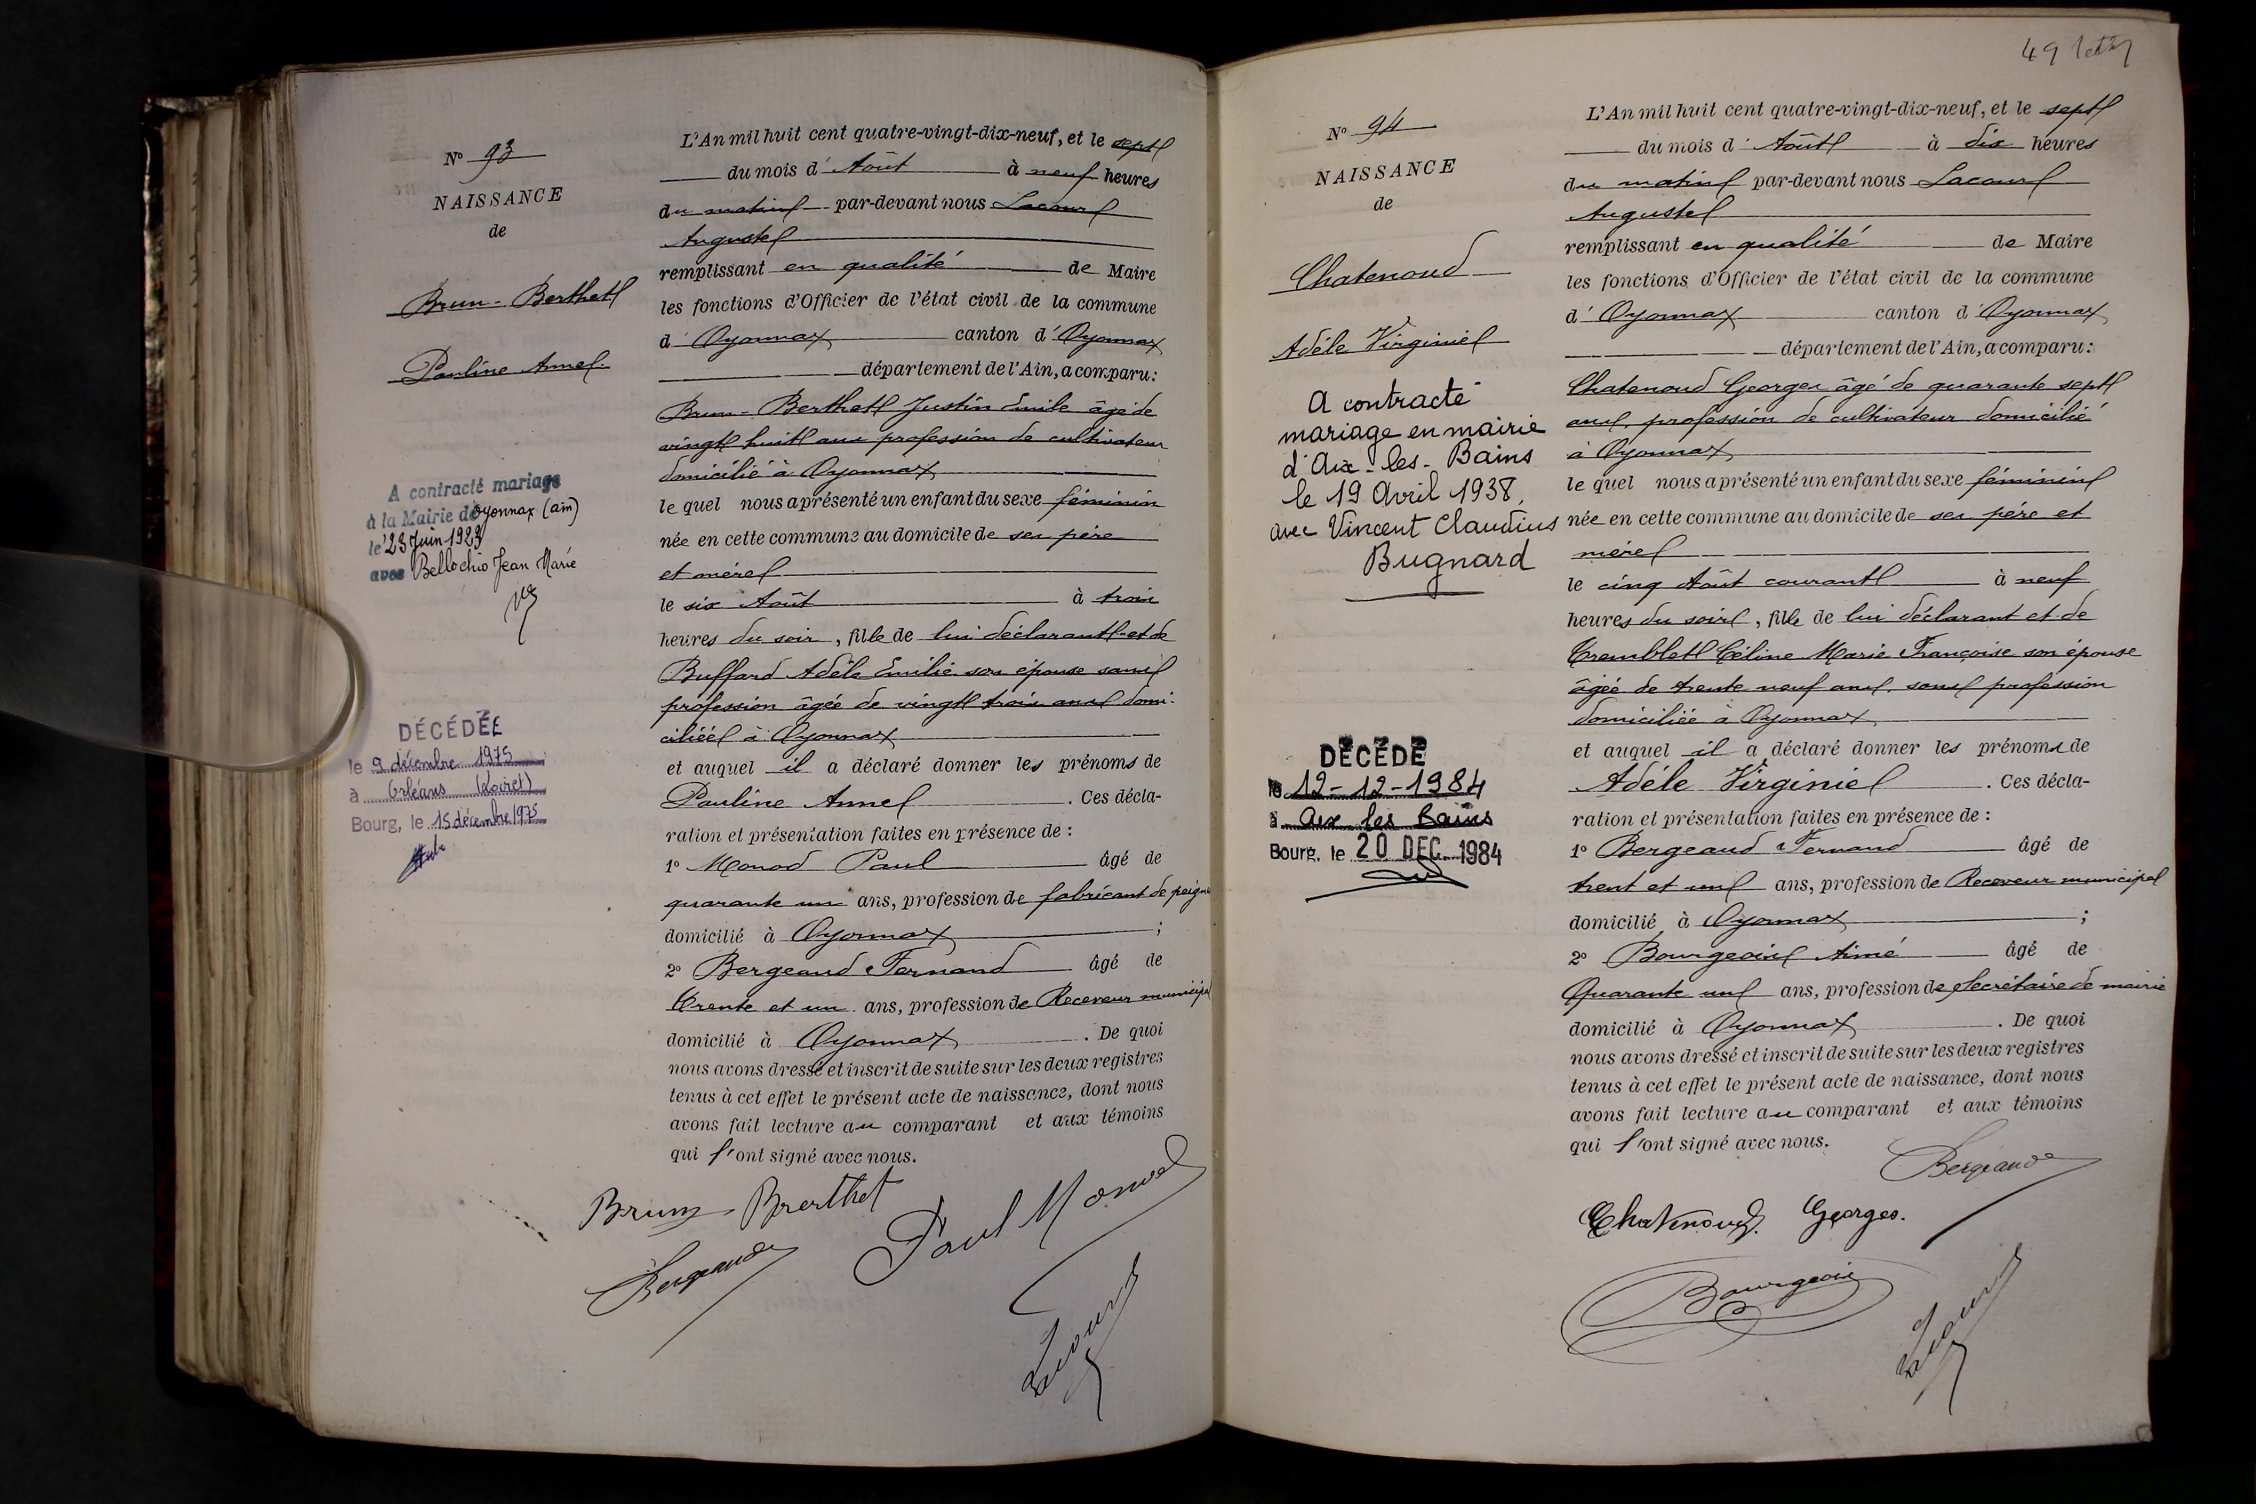 N° 93
NAISSANCE
de
Brun-Berthet
Pauline Anne
A contracté mariage
à la Mairie de Oyonnax (ain)
le 23 Juin 1923
avec Bellochio Jean Marie
DÉCÉDÉE
le 9 décembre 1975
à Orléans (Loiret)
Bourg, le 15 décembre 1975
L'An mil huit cent quatre-vingt-dix-neuf, et le sept
du mois d' Août à neuf heures
du matin par-devant nous Lacour
Auguste
remplissant en qualité de Maire
les fonctions d'Officier de l'état civil de la commune
d' Oyonnax canton d' Oyonnax
département de l'Ain, a comparu:
Brun-Berthet Justin Emile âgé de
vingt huit ans profession de cultivateur
domicilié à Oyonnax
le quel nous a présenté un enfant du sexe féminin
née en cette commune au domicile de ses père
et mère
le six Août à trois
heures du soir, fille de lui déclarant et de
Buffard Adèle Emilie son épouse sans
profession âgée de vingt trois ans domi-
ciliée à Oyonnax
et auquel il a déclaré donner les prénoms de
Pauline Anne. Ces décla-
ration et présentation faites en présence de :
1° Monod Paul âgé de
quarante un ans, profession de fabricant de peignes
domicilié à Oyonnax ;
2° Bergeaud Fernand âgé de
trente et un ans, profession de Receveur municipal
domicilié à Oyonnax. De quoi
nous avons dressé et inscrit de suite sur les deux registres
tenus à cet effet le présent acte de naissance, dont nous
avons fait lecture au comparant et aux témoins
qui l'ont signé avec nous.
Brun-Brerthet
Paul Monod
Bergeaud
Lacour
49
N° 94
NAISSANCE
de
Chatenoud
Adèle Virginie
A contracté
mariage en mairie
d'Aix-les-Bains
le 19 Avril 1938,
avec Vincent Claudius
Bugnard
DÉCÉDÉ
le 12-12-1984
à Aix les Bains
Bourg, le 20 DEC. 1984
L'An mil huit cent quatre-vingt-dix-neuf, et le sept
du mois d' Août à dix heures
du matin par-devant nous Lacour
Auguste
remplissant en qualité de Maire
les fonctions d'Officier de l'état civil de la commune
d' Oyonnax canton d' Oyonnax
département de l'Ain, a comparu:
Chatenoud Georges âgé de quarante sept
ans, profession de cultivateur domicilié
à Oyonnax
le quel nous a présenté un enfant du sexe féminin
née en cette commune au domicile de ses père et
mère
le cinq Août courant à neuf
heures du soir, fille de lui déclarant et de
Tremblet Céline Marie Françoise son épouse
âgée de trente neuf ans, sans profession
domiciliée à Oyonnax
et auquel il a déclaré donner les prénoms de
Adèle Virginie. Ces décla-
ration et présentation faites en présence de :
1° Bergeaud Fernand âgé de
trent et un ans, profession de Receveur municipal
domicilié à Oyonnax ;
2° Bourgeois Aimé âgé de
Quarante un ans, profession de Secrétaire de mairie
domicilié à Oyonnax. De quoi
nous avons dressé et inscrit de suite sur les deux registres
tenus à cet effet le présent acte de naissance, dont nous
avons fait lecture au comparant et aux témoins
qui l'ont signé avec nous.
Bergeaud
Chatenoud Georges.
Bourgeois
Lacour